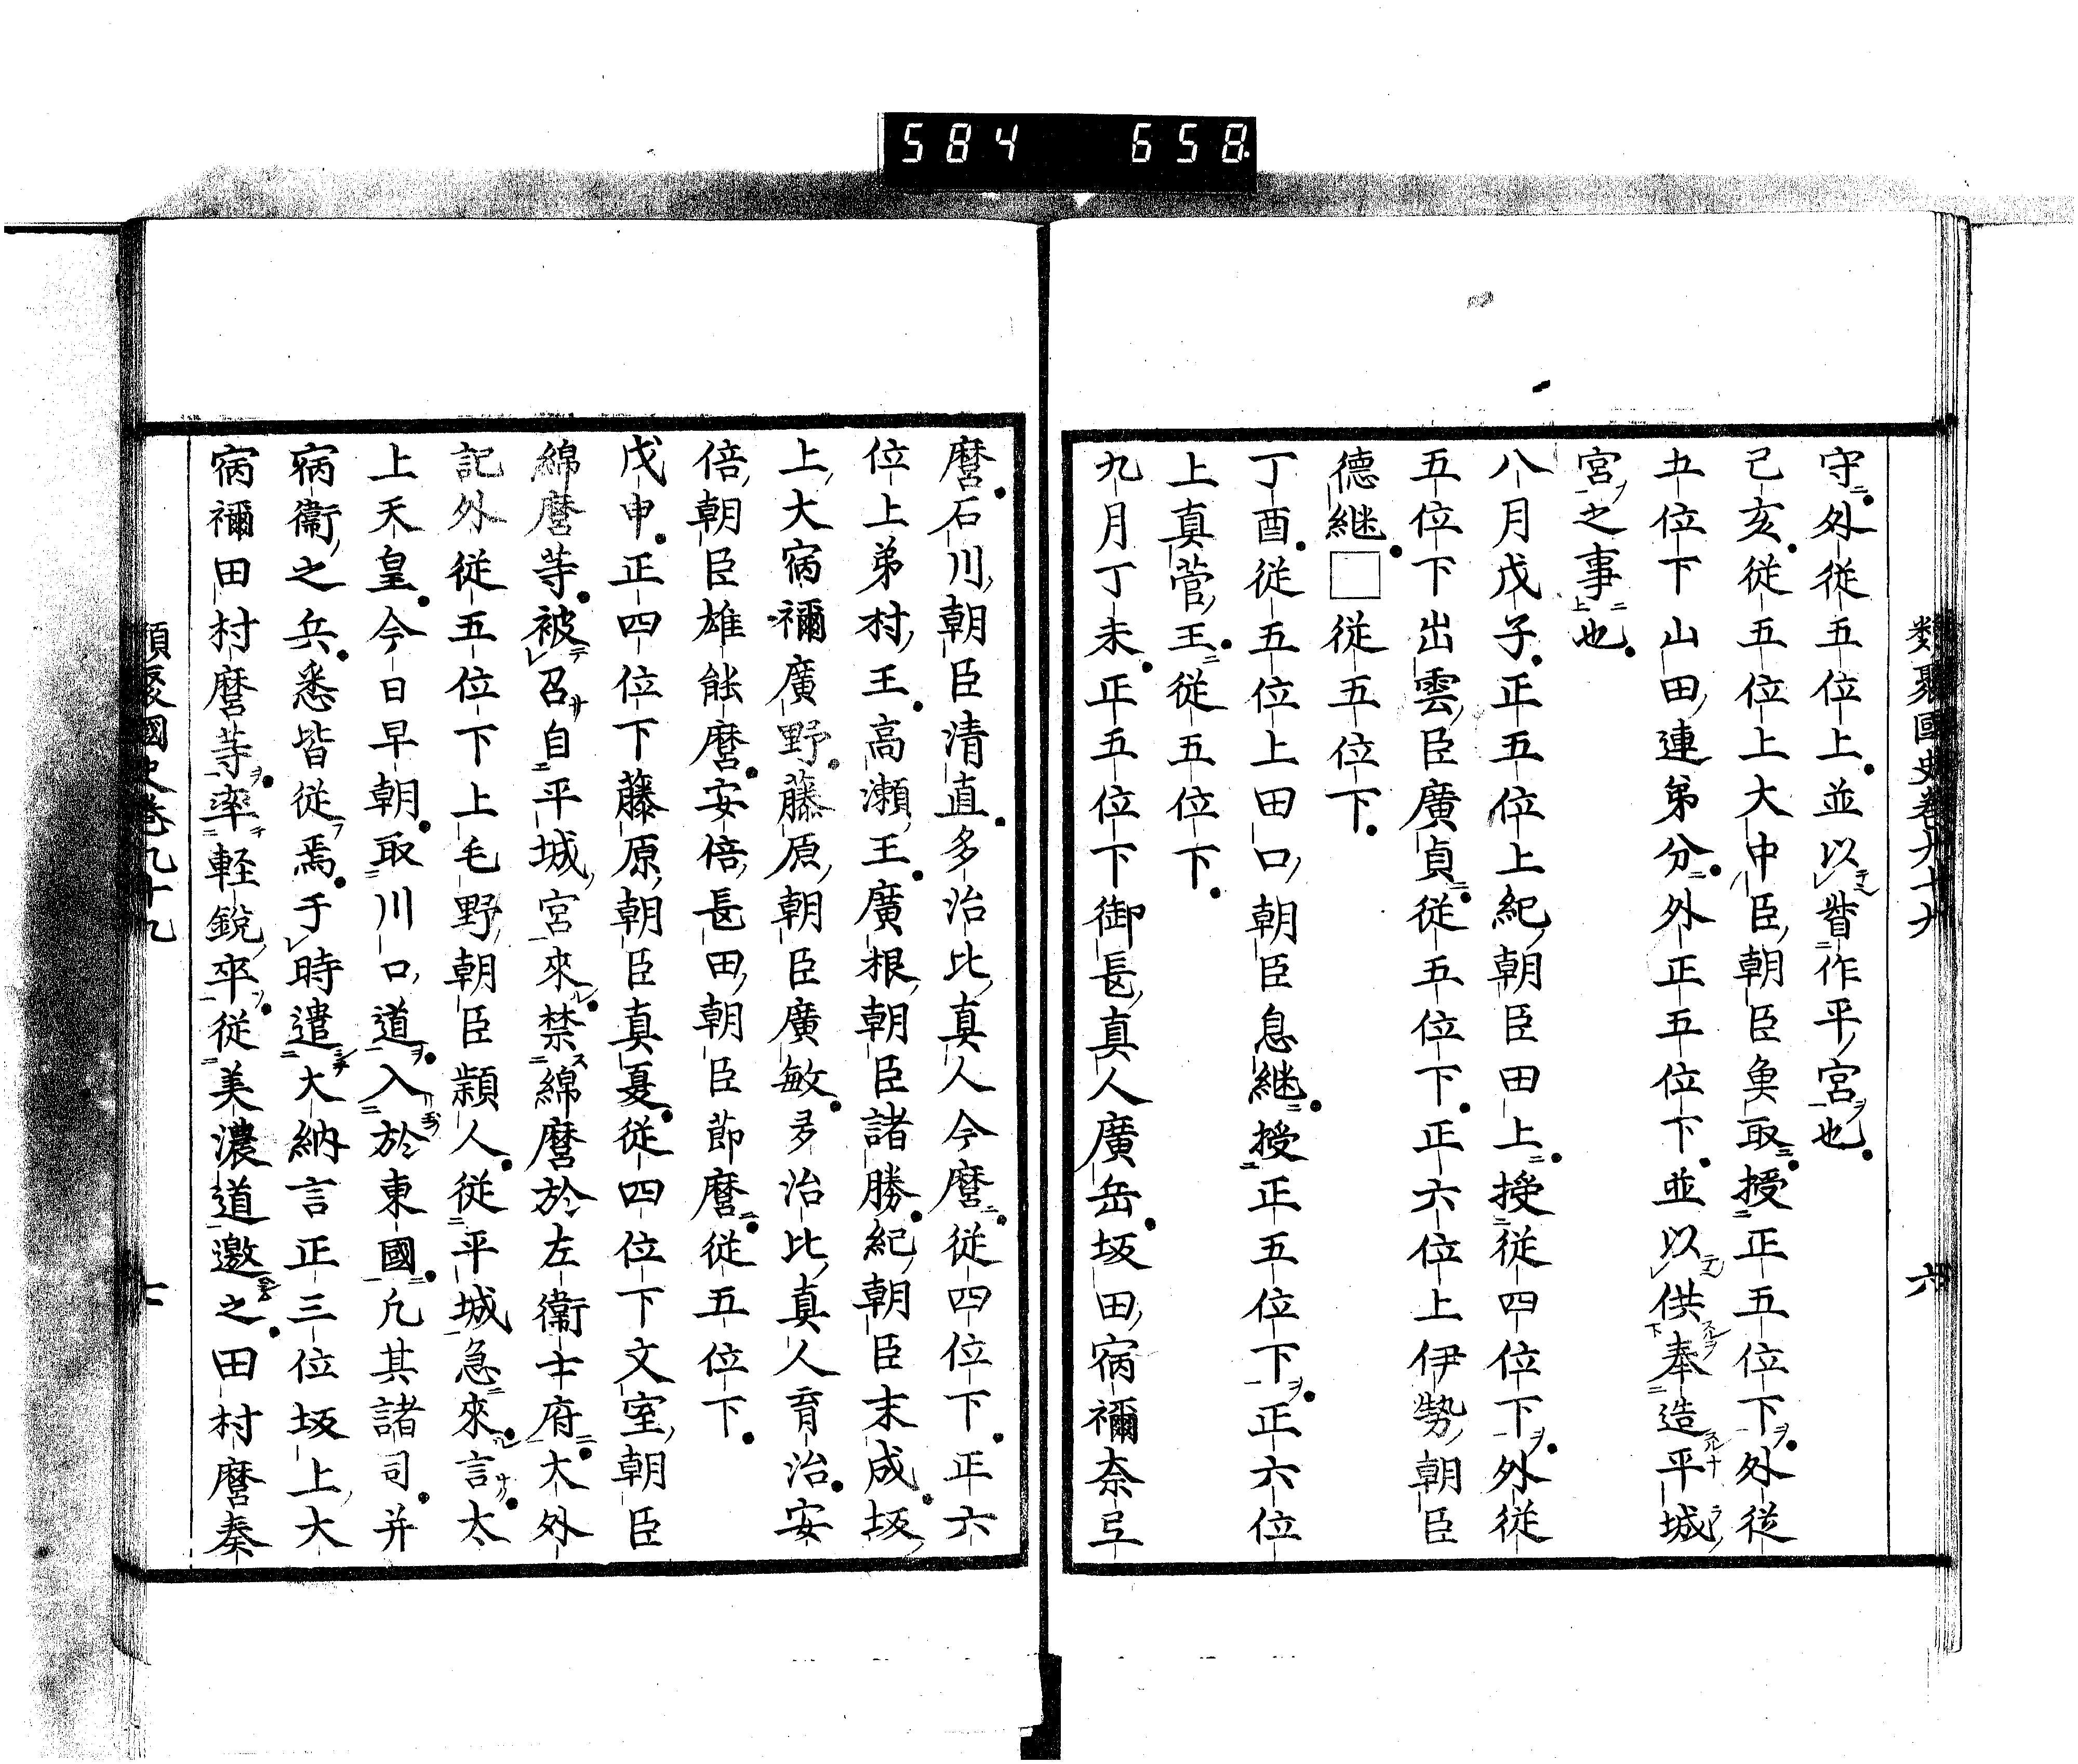 584 658
類聚國史卷九十九 六
守外從五位上並以督作平宮也
己亥從五位上大中臣朝臣魚取授正五位下外從
五位下山田連弟分外正五位下並以供奉造平城
宮之事也
八月戊子正五位上紀朝臣田上授從四位下外從
五位下出雲臣廣貞從五位下正六位上伊勢朝臣
德継□從五位下
丁酉從五位上田口朝臣息継授正五位下正六位
上真菅王從五位下
九月丁未正五位下御長真人廣岳坂田宿禰奈弖
麿石川朝臣清直多治比真人今麿從四位下正六
位上弟村王高瀬王廣根朝臣諸勝紀朝臣末成坂
上大宿禰廣野藤原朝臣廣敏多治比真人育治安
倍朝臣雄能麿安倍長田朝臣節麿從五位下
戊申正四位下藤原朝臣真夏從四位下文室朝臣
綿麿等被召自平城宮來禁綿麿於左衞士府大外
記外從五位下上毛野朝臣穎人從平城急來言太
上天皇今日早朝取川口道入於東國凡其諸司并
宿衞之兵悉皆從焉于時遣大納言正三位坂上大
宿禰田村麿等率軽銳卒從美濃道邀之田村麿奏
類聚國史卷九十九 七